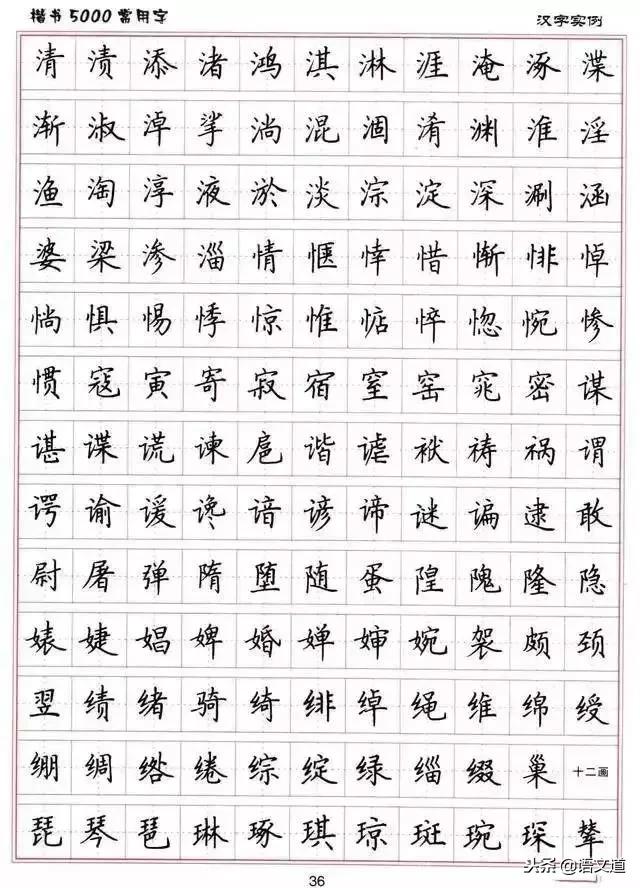 楷书5000常用字 汉字实例
清渍添渚鸿淇淋涯淹涿渫
渐淑淖挲淌混涸淆渊淮淫
渔淘淳液淤淡淙淀深涮涵
婆梁渗淄情惬悻惜惭悱悼
惝惧惕悸惊惟惦悴惚惋惨
惯寇寅寄寂宿窒窑窕密谋
谌谍谎谏扈谐谑袱祷祸谓
谔谕谖谗谙谚谛谜谝逮敢
尉屠弹隋堕随蛋隍隗隆隐
婊婕娼婢婚婵婶婉袈颇颈
翌绩绪骑绮绯绰绳维绵绶
绷绸绺绻综绽绿缁缀巢 十二画
琵琴琶琳琢琪琼斑琬琛辇
36
头条@语文道